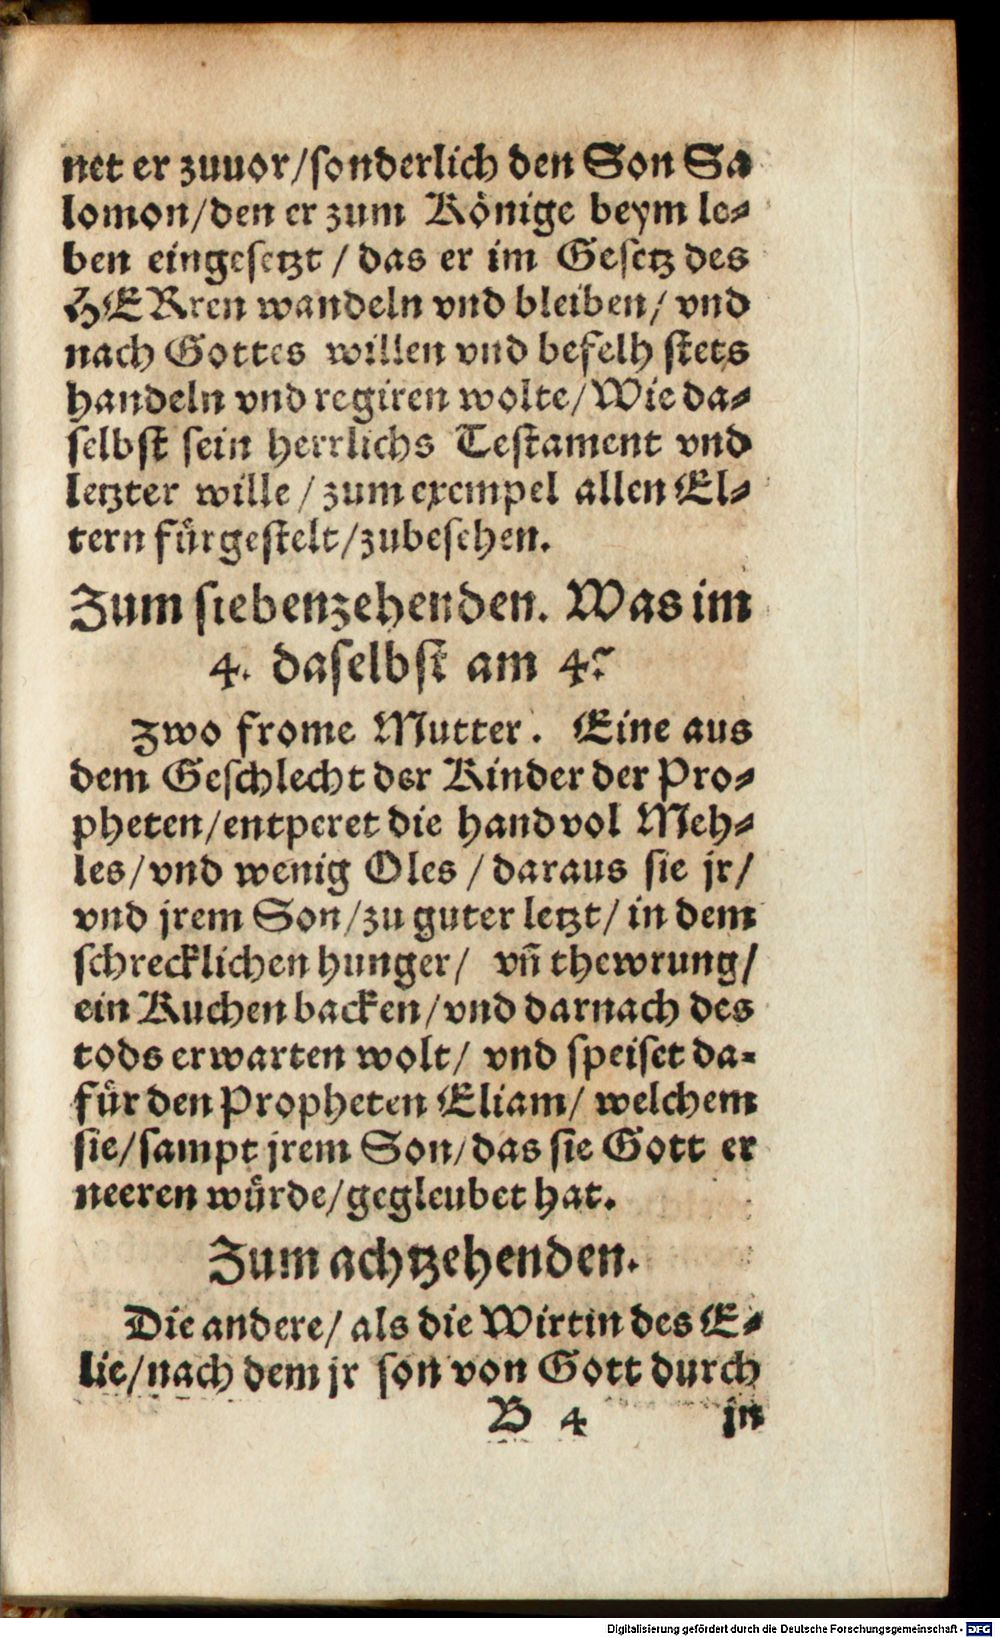 net er zuuor/sonderlich den Son Sa
lomon/den er zum Könige beym le-
ben eingesetzt / das er im Gesetz des
HERren wandeln vnd bleiben/ vnd
nach Gottes willen vnd befelh stets
handeln vnd regiren wolte/Wie da-
selbst sein herrlichs Testament vnd
letzter wille / zum exempel allen El-
tern fürgestelt/zubesehen.
Zum siebenzehenden. Was im
4. daselbst am 4.
Zwo frome Mutter. Eine aus
dem Geschlecht der Kinder der Pro-
pheten/entperet die handvol Meh-
les/vnd wenig Oles / daraus sie jr/
vnd jrem Son/zu guter letzt/ in dem
schrecklichen hunger/ vñ thewrung/
ein Kuchen backen/vnd darnach des
tods erwarten wolt/ vnd speiset da-
für den Propheten Eliam/ welchem
sie/sampt jrem Son/das sie Gott er
neeren würde/gegleubet hat.
Zum achtzehenden.
Die andere/ als die Wirtin des E-
lie/nach dem jr son von Gott durch
B 4 jn
Digitalisierung gefördert durch die Deutsche Forschungsgemeinschaft - DFG